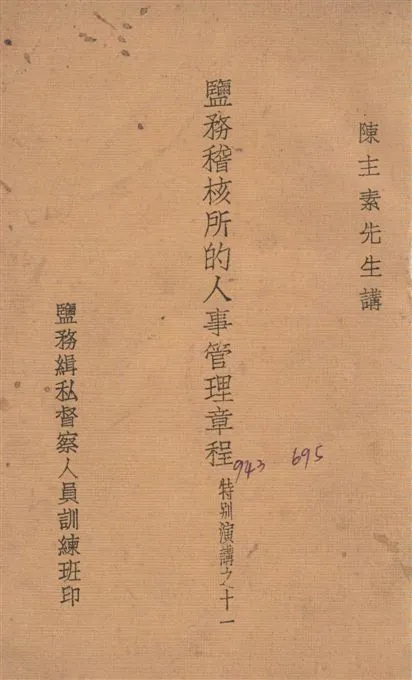 陳主素先生講
鹽務稽核所的人事管理章程
特别演講之十一
943 695
鹽務緝私督察人員訓練班印